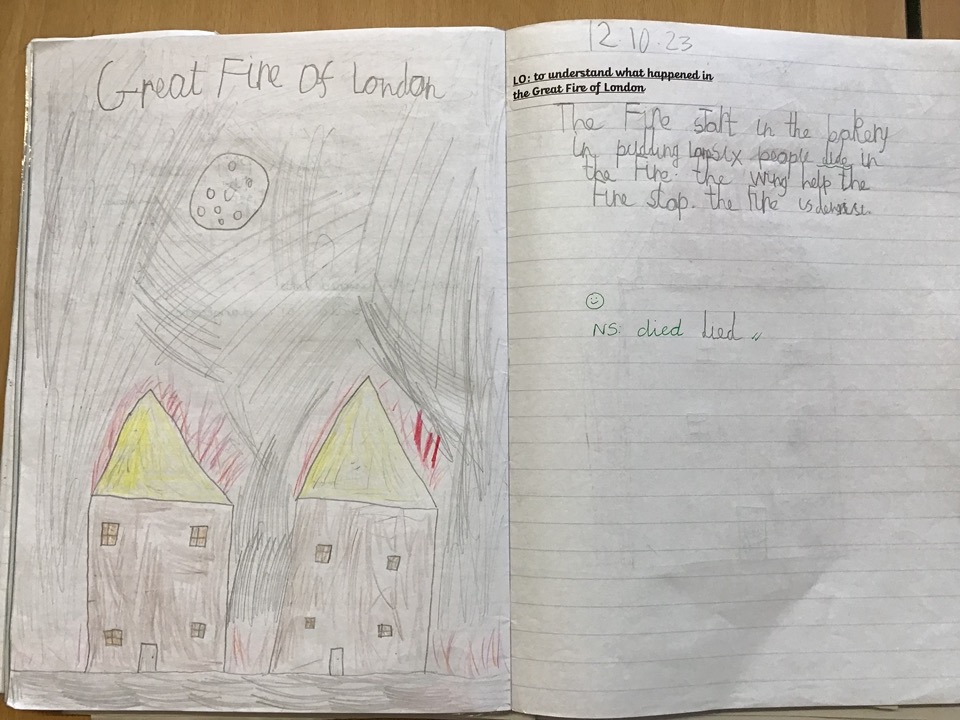 Great Fire Of London
12.10.23
LO: to understand what happened in
the Great Fire of London
The Fire statt in the bakery
in pudding lansix people dide in
the Fire. the wing help the
Fire stop. the fire is
NS: died died